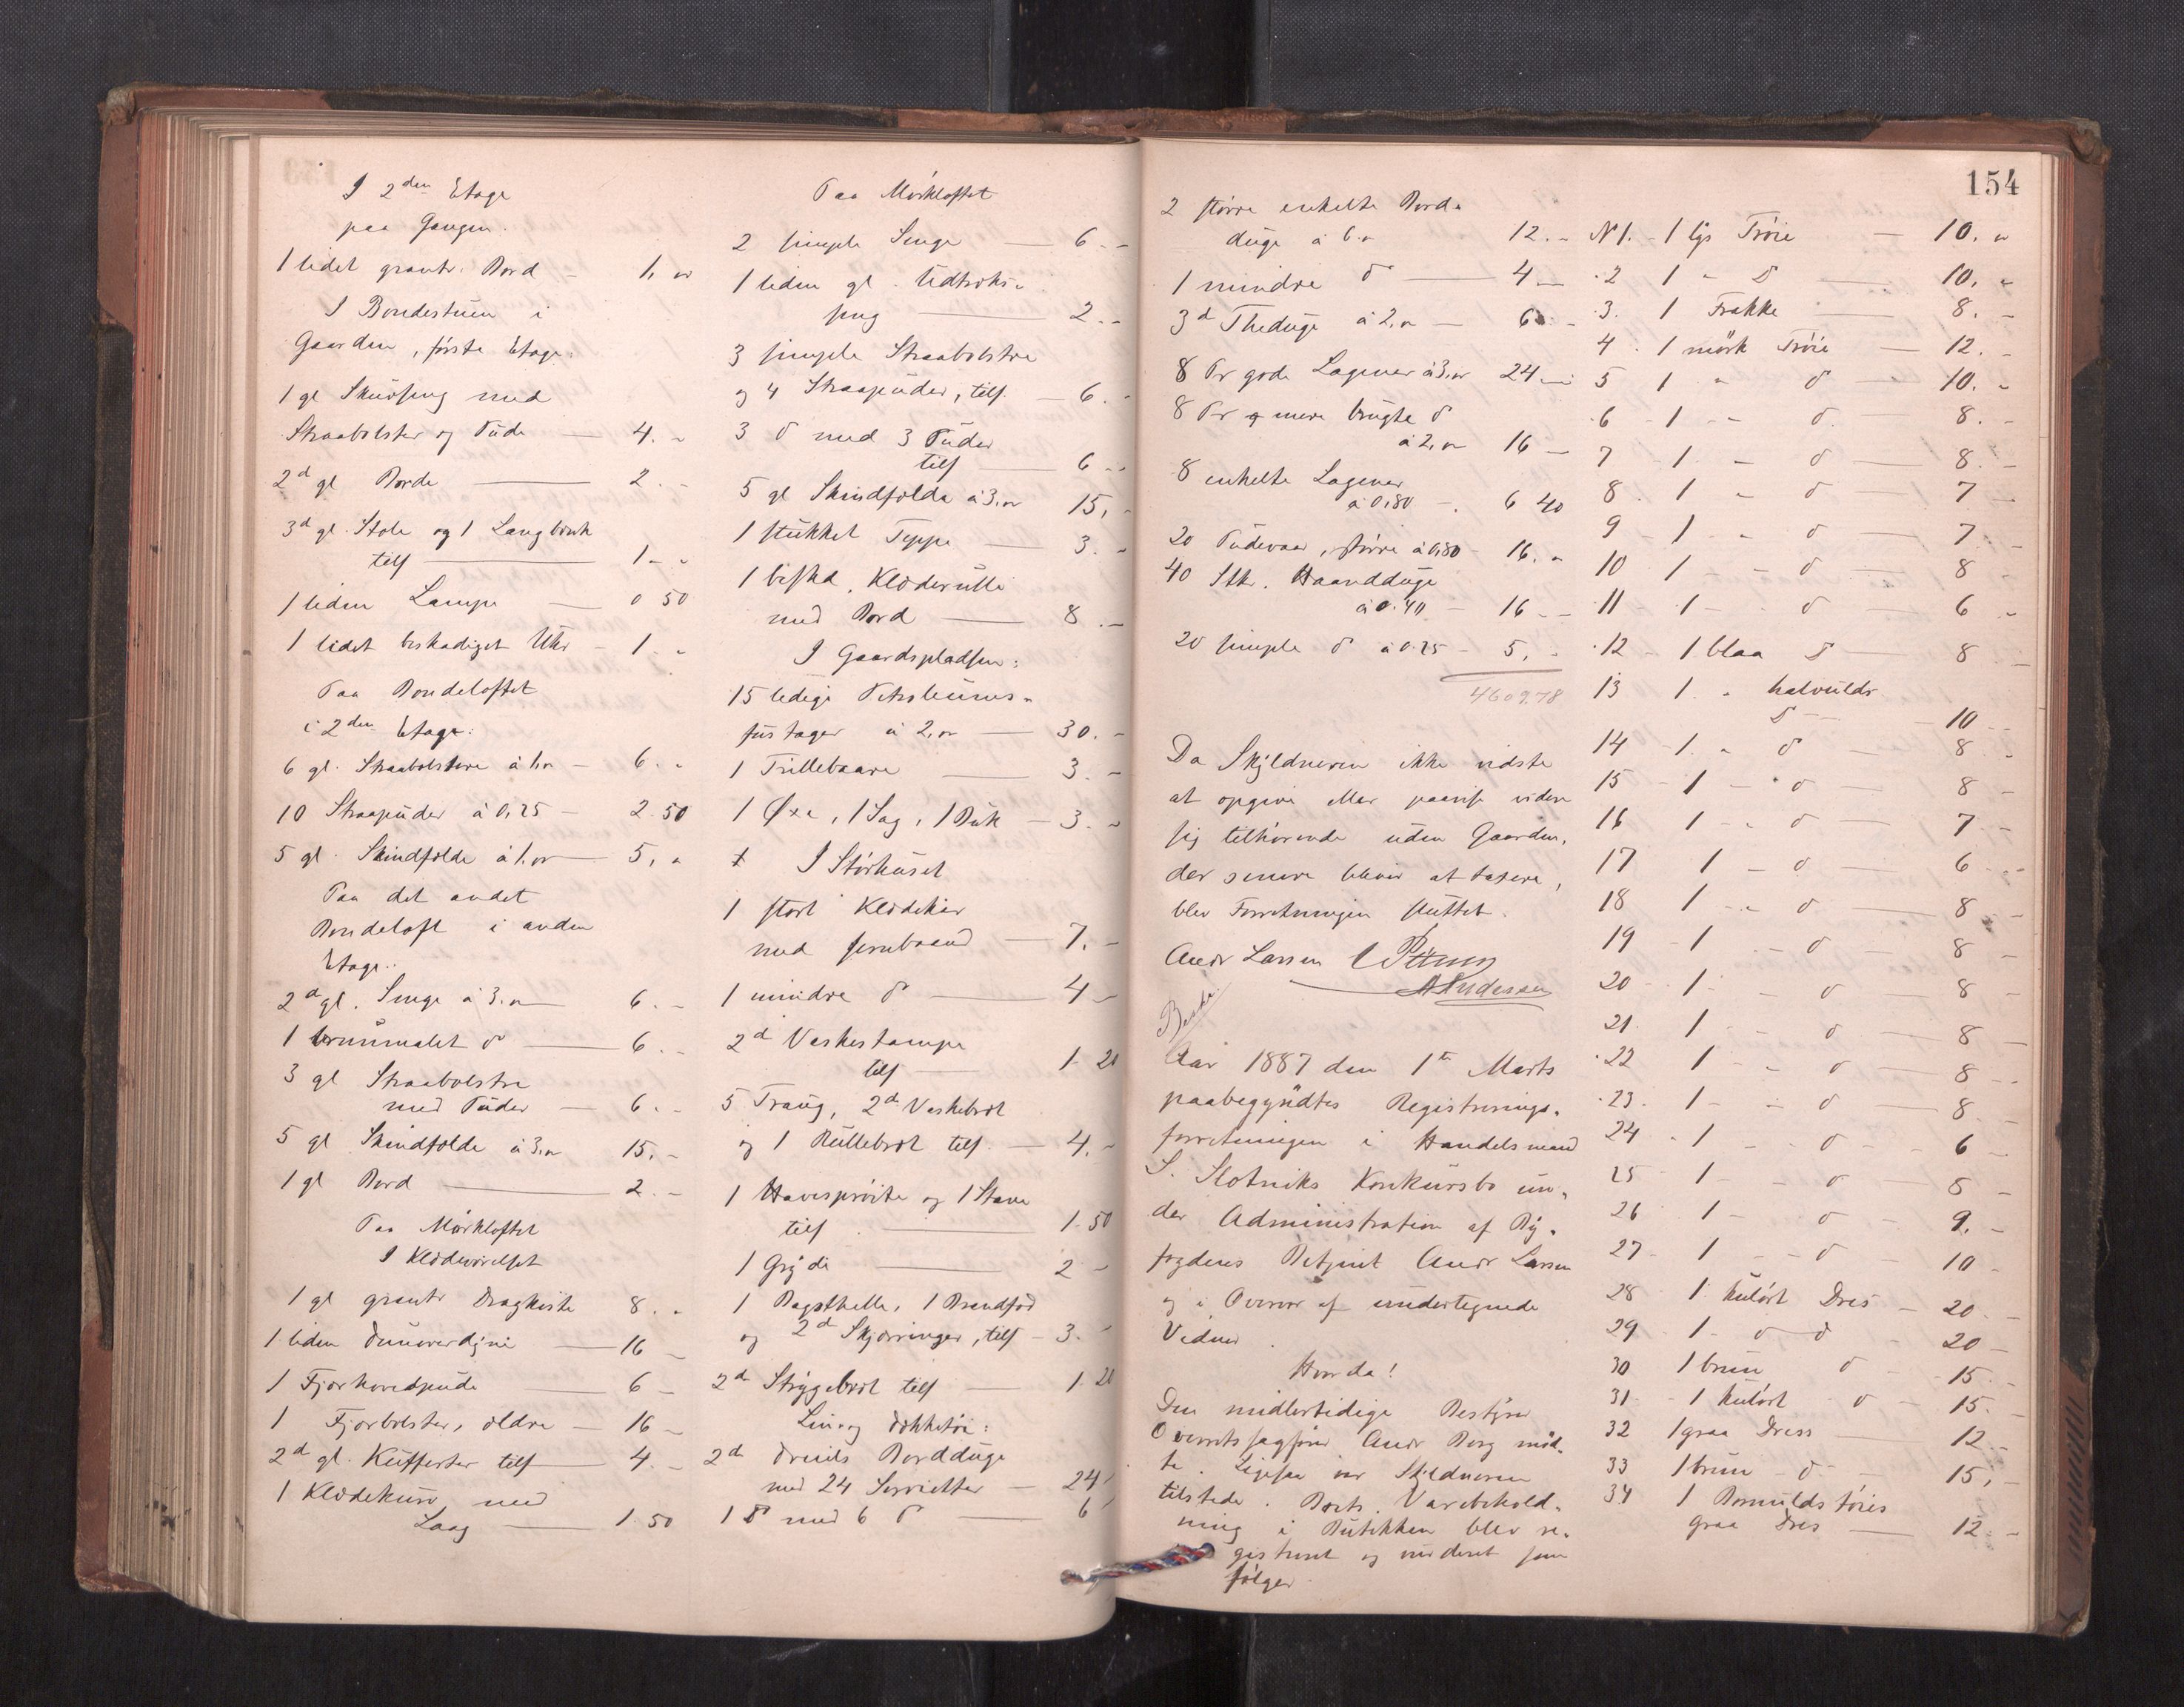 I 2den Etage
paa Gangen.
1 lidet grantr. Bord - 1. "
I Bondestuen i
Gaarden, første Etage:
1 gl Skuvseng med
Straabolster og Pude - 4. "
2d gl Borde - 2. -
3d gl. Stole og 1 Langbænk
tils - 1. "
1 liden Lampe - 0 50
1 lidet beskadiget Uhr - 1. "
Paa Bondeloftet
i 2den Etage:
6 gl. Straabolstere á 1." - 6. "
10 Straapuder á 0,25 - 2.50
5 gl. Skindfelde á 1." - 5. "
Paa det andet
Bondeloft i anden
Etage:
2d gl. Senge á 3." - 6. -
1 brunmalet do - 6. -
3 gl Straabolstre
med Puder - 6. -
5 gl Skindfelde á 3." 15. -
1 gl Bord - 2. -
Paa Mørkloftet
I Klædeværelset
1 gl grantr Dragkiste 8. "
1 liden Dunoverdyne - 16 -
1 Fjærhovedpude - 6 -
1 Fjærbolster, ældre - 16 -
2d gl. Kufferter tils - 4. -
1 Klædekurv med
Laag - 1.50
Paa Mørkloftet
2 simple Senge - 6. -
1 liden gl. Udtræks-
seng - 2. -
3 simple Straabolstre
og 4 Straapuder, tils. - 6. -
3 do med 3 Puder
tils - 6 -
5 gl Skindfelde á 3." 15, -
1 stukket Teppe - 3. -
1 besk. Klæderulle
med Bord - 8. -
I Gaardspladsen:
15 ledige Petroleums-
fustager á 2." - 30. -
1 Trillebaare - 3. -
1 Øxe, 1 Sag, 1 Buk - 3. -
I Størhuset
1 stort Klædekar
med Jernbaand - 7. -
1 mindre do - 4 -
2d Vaskestampe
tils - 1. 20
5 Traug, 2d Vaskebræt
og 1 Rullebræt tils. - 4. -
1 Havesprøite og 1 Stave
tils. - 1.50
1 Gryde - 2 -
1 Bagsthelle, 1 Brandfod
og 2d Skjærringer, tils - 3. -
2d Strygebræt tils - 1.20
Lin- og Dækketøi:
2d Dreiels Bordduge
med 24 Servietter - 24 -
1 do med 6 do - 6 -
154
2 større enkelte Bord-
duge á 6." 12. "
1 mindre do - 4 -
3d Theduge á 2." - 6 -
8 Pr gode Lagener á 3." 24 -
8 Pr mere brugte do
á 2." 16 -
8 enkelte Lagener
á 0,80 - 6 40
20 Pudevaar, større á 0,80 - 16. "
40 Stk. Haandduge
á 0.40 - 16 - -
20 simple do á 0.25 - 5. -
4609.78
Da Skyldneren ikke vidste
at opgive eller paavise videre
sig tilhørende uden Gaarden,
der senere bliver at taxere,
blev Forretningen sluttet.
Andr Larsen
A Andersen
Aar 1887 den 1te Marts
paabegyndtes Registrerings-
forretningen i Handelsmand
S. Slotniks Konkursbo un-
der Administration af By-
fogdens Betjent Andr Larsen
og i Overvær af undertegnede
Vidner.
Hvorda!
Den midlertidige Bestyrer
Overretssagfører Andr Borg mød-
te. Ligesaa var Skyldneren
tilstede. Boets Varebehold-
ning i Butikken blev re-
gistreret og vurderet som
følger
N 1. - 1 lys Trøie - 10. "
2 1 " do - 10. "
3. 1 Frakke 8. -
4. 1 mørk Trøie - 12. -
5 1 " do - 10. "
6 - 1 - " do. - 8. -
7 - 1. - do - 8. -
8. 1 " do - 7 -
9 1 " do - 7 -
10 1 - - do - 8 -
11 - 1 - - do - 6 "
12 - 1 blaa do - 8 -
13 1. " halvulds
do - - 10 -
14 - 1. " do - 8 -
15 - 1 - " do - 8 -
16 1 - " do - 7 -
17 1 - do - 6 -
18 1 - " do - 8 -
19 - 1 - do - 8 -
20 - 1 - - do - 8 -
21. 1 - - do - 8 -
22 1 - - do - 8 -
23. 1 - - do - 8 -
24 - 1 - - do - 6 -
25 1 - - do - 8 -
26 1 - - do - 9. -
27 - 1 - - do - 10 -
28 1 kulørt Dres - 20. -
29 - 1 - do do - 20 -
30 1 brun do - 15. -
31 - 1 kulørt do - 15. -
32 1 graa Dress - 12 -
33 1 brun - do - 15, -
34 1 Bomuldstøies
graa Dres - 12. -